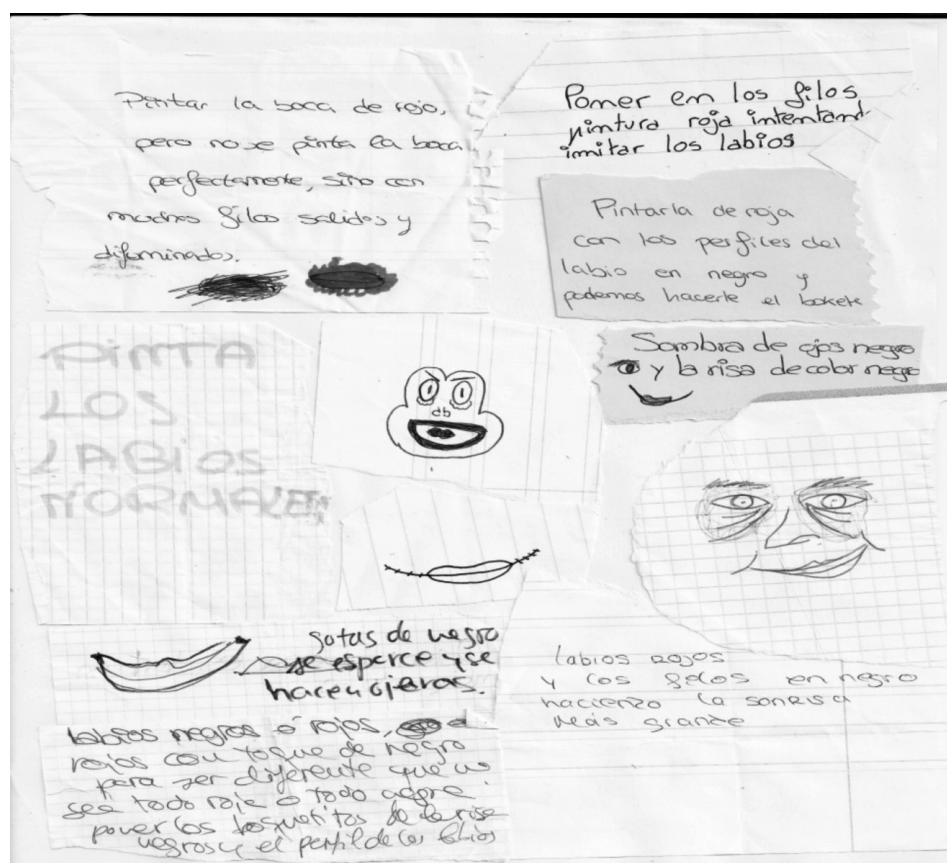 Pintar la boca de rojo,
pero no se pinta la boca
perfectamente, sino con
muchos filos salidos y
difuminados.
Poner en los filos
pintura roja intentand
imitar los labios
Pintarla de roja
con los perfiles del
labio en negro y
podemos hacerle el bokete
Sombra de ojos negro
y la risa de color negro
PINTA
LOS
LABIOS
NORMALES
gotas de negro
se esparce y se
hacen ojeras.
labios rojos
y los filos en negro
haciendo la sonrisa
más grande
labios negros o rojos,
rojos con toque de negro
para ser diferente que no
sea todo rojo o todo negro.
poner los boquetitos de la risa
negros y el perfil de los labios